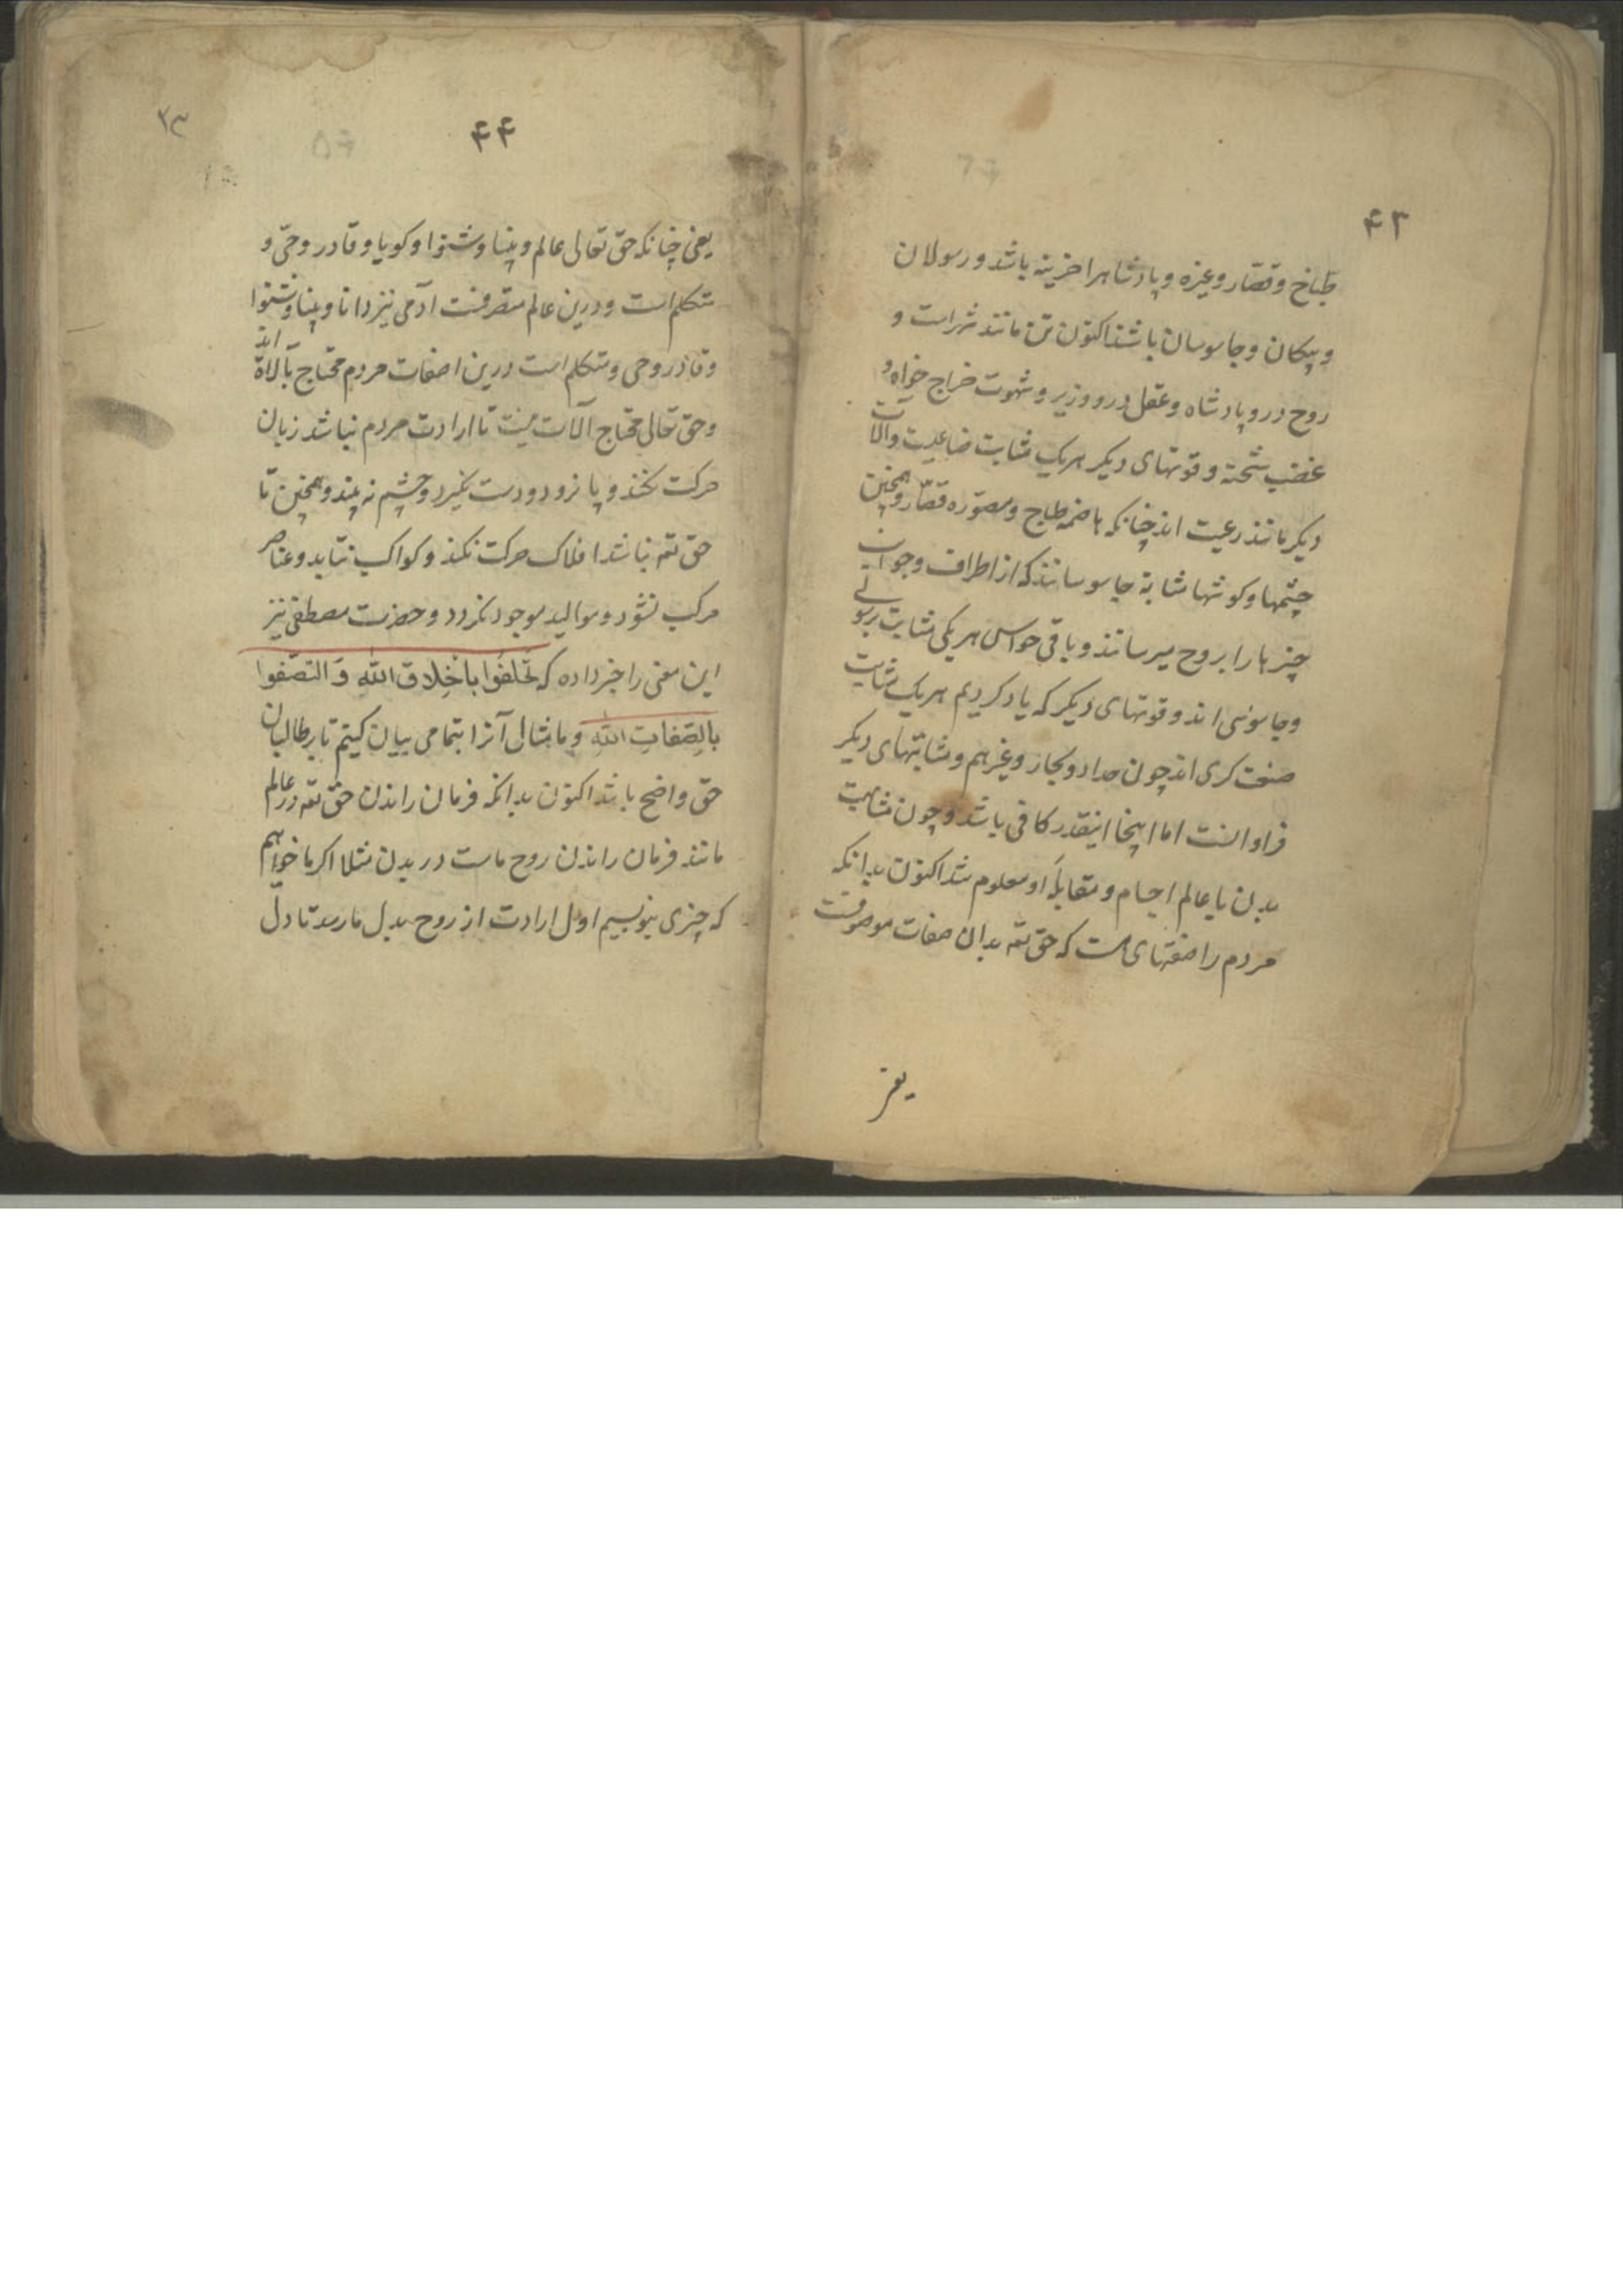 ۴۳
طباخ و قصّار و غیره و پادشاهرا خزینه باشد و رسولان
و پیکان و جاسوسان باشند اکنون تن مانند شهر است و
روح درو پادشاه و عقل درو وزیر و شهوت خراج خواه و
غضب شحنه و قوتهای دیکر هریک مشابت صناعیست و آلات
دیکر مانند رعیت اند چنانکه هاضمه طباخ و مصوّره قصّار و همچنین
چشمها و کوشها مشابهٔ جاسوسانند که از اطراف و جوانب
چیزها را بروح میرسانند و باقی حواس هر یکی مشابت رسولی
و جاسوسی اند و قوتهای دیکر که یاد کردیم هریک مشابت
صنعت کری اند چون حداد و نجار و غیرهم و مشابتهای دیکر
فراوانست اما اینجا اینقدر کافی باشد و چون مشابهت
بدن با عالم اجسام و مقابلهٔ او معلوم شد اکنون بدانکه
مردم را صفتهای هست که حق تعه بدان صفات موصوفست
یعنی
۴۴
۴۳
یعنی چنانکه حق تعالی عالم و بینا و شنوا و کویا و قادر و حیّ و
متکلم است و درین عالم متصرفست آدمی نیز دانا و بینا و شنوا
و قادر و حی و متکلم است درین اصفات مردم محتاج بآلاة اند
و حق تعالی محتاج آلات نیست تا ارادت مردم نباشد زبان
حرکت نکند و پا نرود و دست نکیرد و چشم نه بیند و همچنین تا
حق تعه نباشد افلاک حرکت نکند و کواکب نتابد و عناصر
مرکب نشود و موالید موجود نکردد و حضرت مصطفی نیز
این معنی را خبر داده که تَخلقُوا بِاَخْلِاقِ اللّٰهِ وَ التصّفوا
بِالصِّفاتِ اللّٰهِ و ما مثال آنرا بتمامی بیان کنیم تا بر طالبان
حق واضح باشد اکنون بدانکه فرمان راندن حق تعه در عالم
مانند فرمان راندن روح ماست در بدن مثلا اکر ما خواهیم
که چیزی بنویسیم اول ارادت از روح بدل ما رسد تا دل